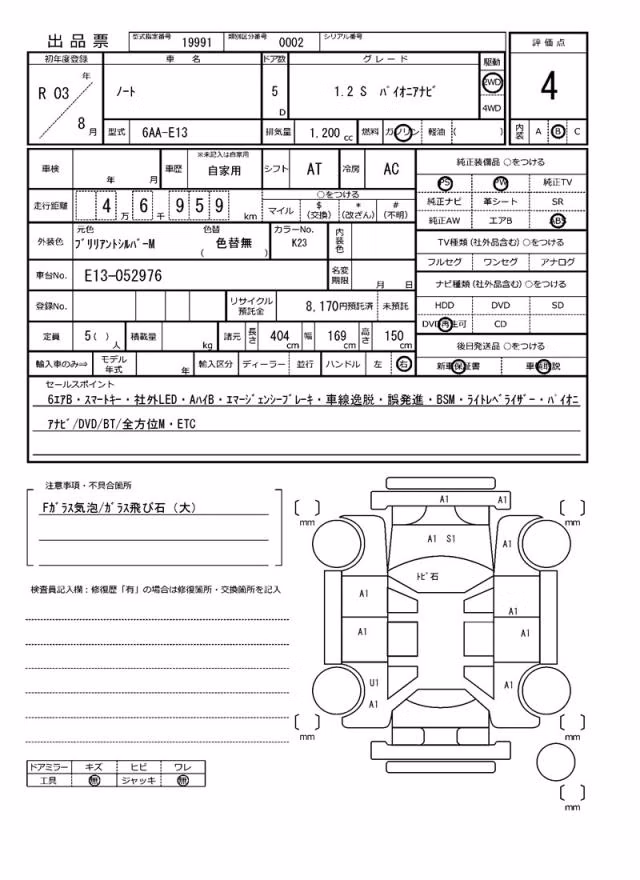 出品票 型式指定番号 19991 類別区分番号 0002 シリアル番号
評価点
4
内装 A B C
初年度登録 車名 ドア数 グレード 駆動
R 03 年 8 月
ノート
5 D
1.2 S パイオニアナビ
2WD
4WD
型式 6AA-E13 排気量 1.200 cc 燃料 ガソリン 軽油 ( )
車検 年 月 車歴 ※未記入は自家用 自家用 シフト AT 冷房 AC
走行距離 4 万 6 千 9 5 9 km
○をつける
マイル $(交換) *(改ざん) #(不明)
外装色 元色 ブリリアントシルバーM 色替 ( 色替無 ) カラーNo. K23 内装色
車台No. E13-052976 名変期限 月 日
登録No. リサイクル預託金 8,170円預託済 未預託
定員 5( ) 人 積載量 kg 諸元 長さ 404 cm 幅 169 cm 高さ 150 cm
輸入車のみ⇒ モデル年式 年 輸入区分 ディーラー 並行 ハンドル 左 右
純正装備品 ○をつける
PS PW 純正TV
純正ナビ 革シート SR
純正AW エアB ABS
TV種類 (社外品含む) ○をつける
フルセグ ワンセグ アナログ
ナビ種類 (社外品含む) ○をつける
HDD DVD SD
DVD再生可 CD
後日発送品 ○をつける
新車保証書 車輌取説
セールスポイント
6エアB・スマートキー・社外LED・AハイB・エマージェンシーブレーキ・車線逸脱・誤発進・BSM・ライトレベライザー・パイオニ
アナビ/DVD/BT/全方位M・ETC
注意事項・不具合箇所
Fガラス気泡/ガラス飛び石 (大)
検査員記入欄：修復歴「有」の場合は修復箇所・交換箇所を記入
ドアミラー キズ ヒビ ワレ
工具 無 ジャッキ 無
A1 A1
[ ] mm [ ] mm
A1 S1
A1 A1
トビ石
A1 A1
A1 A1
U1 A1
A1
[ ] mm [ ] mm
[ ] mm